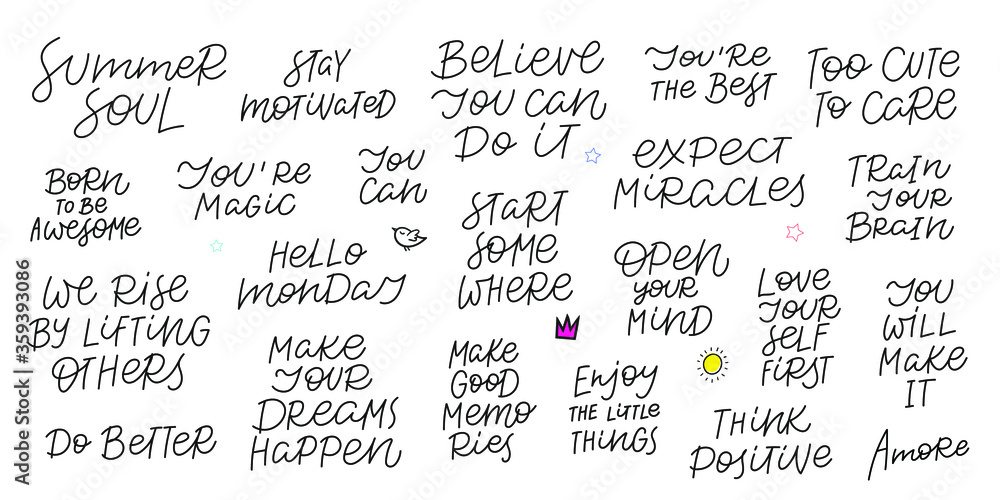 Summer
Soul
Stay
motivated
Believe
you can
Do it
you're
the Best
Too cute
to care
Born
to be
awesome
you're
magic
you
can
Start
some
where
expect
miracles
Train
your
Brain
we rise
by lifting
others
Hello
monday
Open
your
mind
Love
your
self
first
you
will
make
it
Do Better
Make
your
dreams
happen
Make
good
memo
ries
Enjoy
the little
things
Think
positive
Amore
Adobe Stock | #359393086
Adobe Stock
Adobe Stock
Adobe Stock